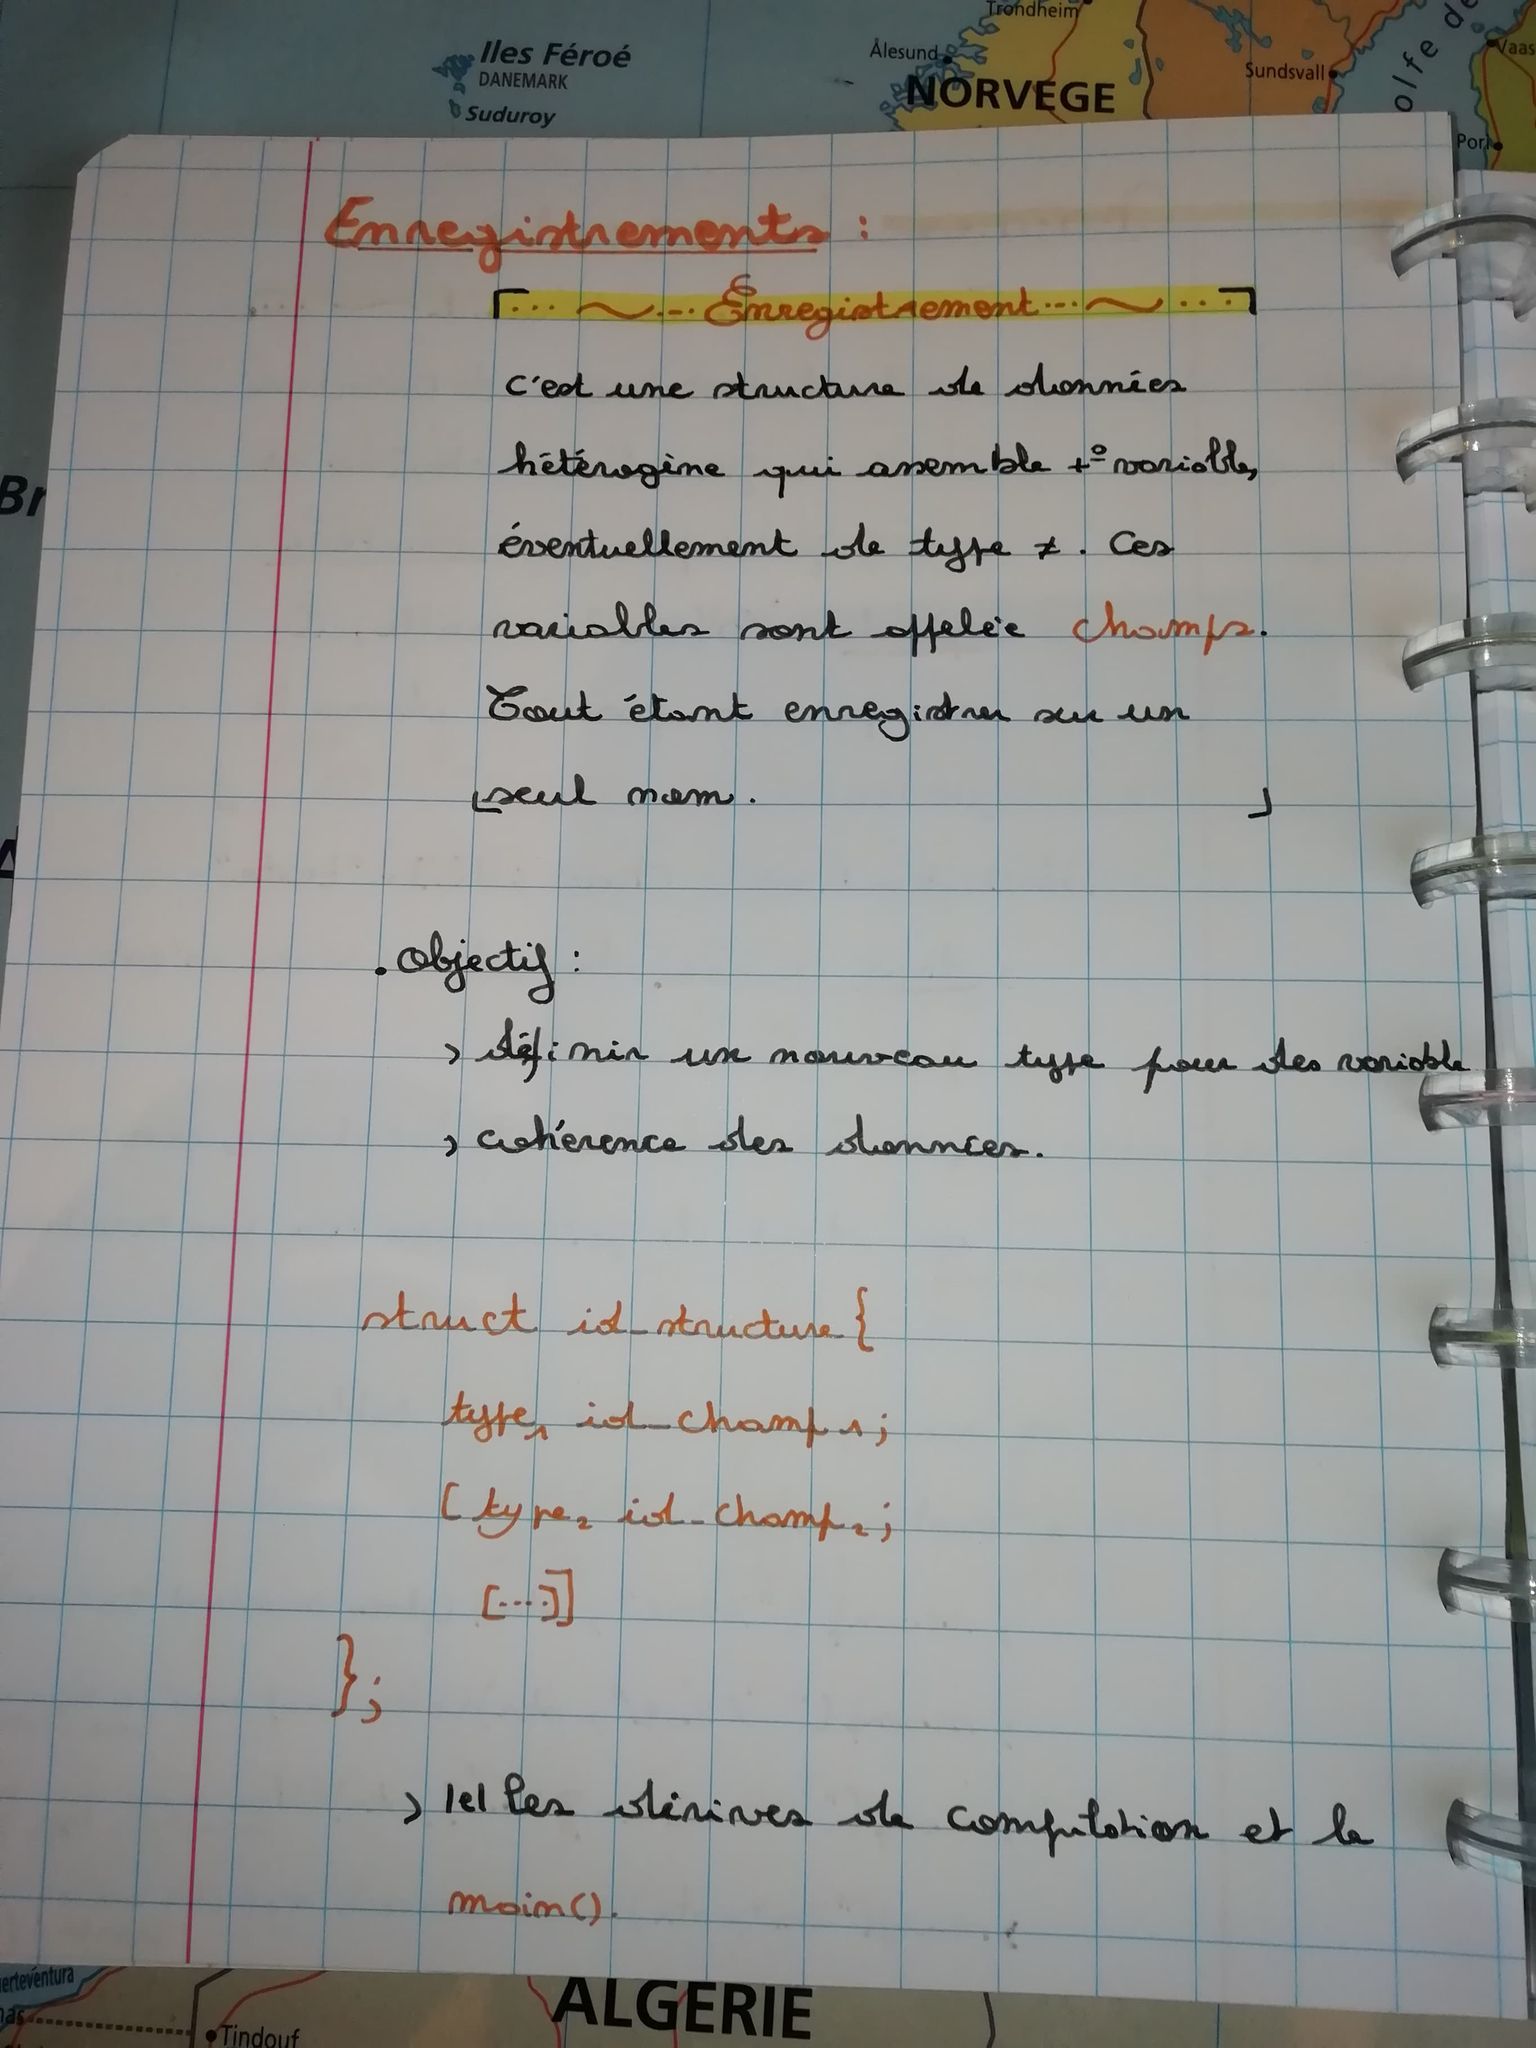 Trondheim
Iles Féroé
DANEMARK
Suduroy
Ålesund
NORVEGE
Sundsvall
olfe de
Vaas
Pori
Br
Enregistrements :
Enregistrement
c'est une structure de données
hétérogène qui assemble +º variable,
éventuellement de type ≠. Ces
variables sont appelée champs.
Tout étant enregistrer sur un
seul nom.
. Objectif :
> définir un nouveau type pour des variable
> cohérence des données.
struct id_structure {
type₁ id_champ₁;
[type₂ id_champ₂;
[...]]
};
> |e| les de et le
main().
erteventura
nas
Tindouf
ALGERIE